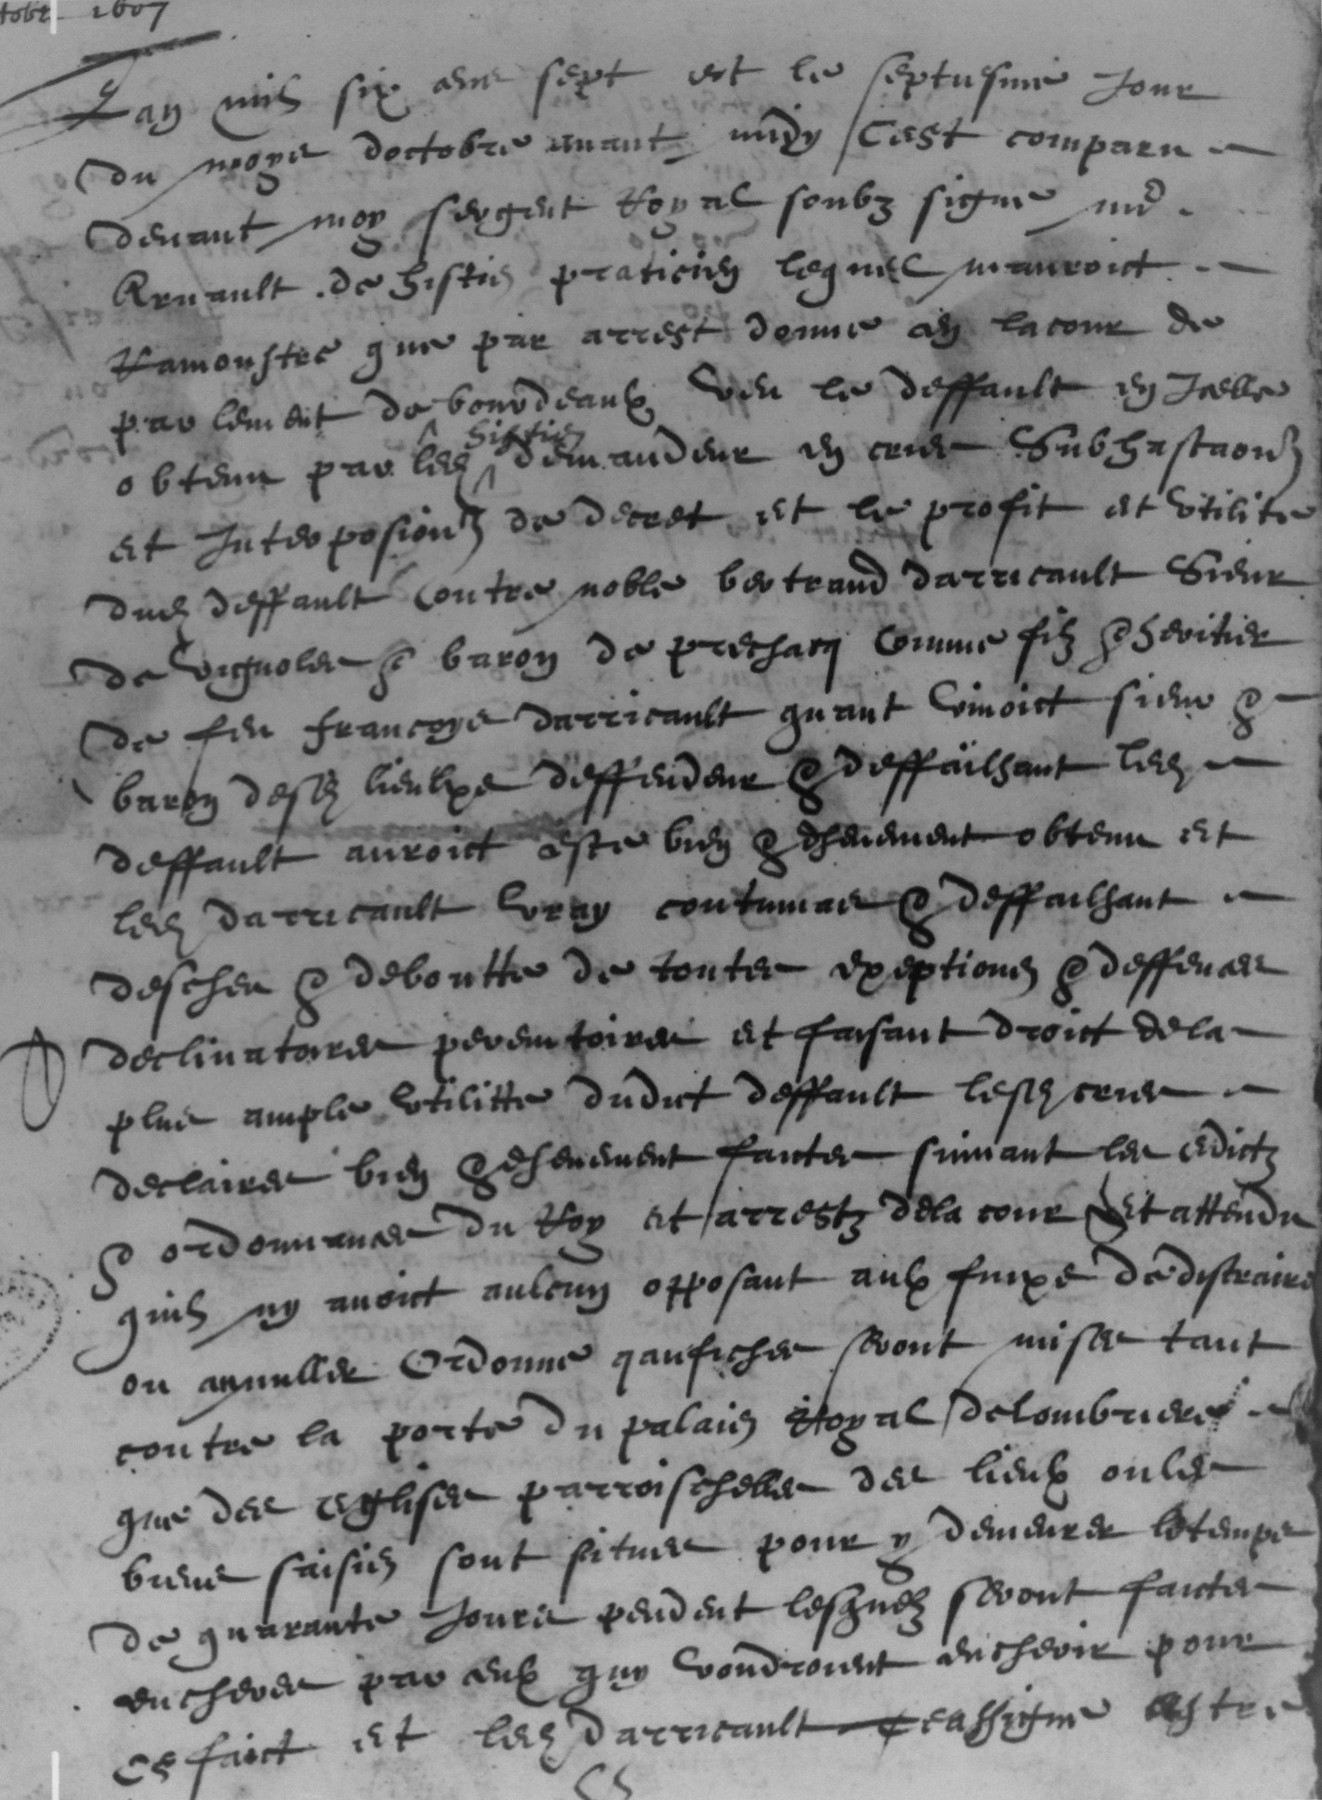 1607
Lan mil six cens sept et le septiesme Jour
du moys doctobre avant midy Cest comparu
devant moy sergent Royal soubz signe me
Arnault de histin praticien lequel mauroict
Ramonstre que par arrest donne en la cour de
parlement de bourdeaux veu le deffault en Icelle
obtenu par led histin demandeur en criees Subhastaons
et Interposions de decret et le profit et utilite
dud deffault Contre noble bertrand darricault Sieur
de vignoles & baron de prechacq Comme filz & heritier
de feu francoys darricault quant vivoict sieur &
baron desd lieulxs deffendeur & deffailhant led
deffault auroict este bien & dhuement obtenu et
led darricault vray contumax & deffailhant
descheu & deboutte de toutes exeptions & deffences
declinatoires peremtoires et faisant droict de la
plus ample utilitte dudict deffault lesd criees
declaires bien & dhuement faictes suivant les edictz
& ordonnances du Roy et arrestz de la cour et attendu
quil ny avoict aulcun opposant aulx fins de distraire
ou annuller Ordonne qauffiches seront mises tant
contre la porte du palais Royal de lombriere
que des esglises parroischelles des lieux ou les
biens saisis sont situes pour y demeurer le temps
de quarante Jours pendent lesquelz seront faictes
encheres par ceulx quy voudroient encherir pour
ce faict et led darricault reassigne estre